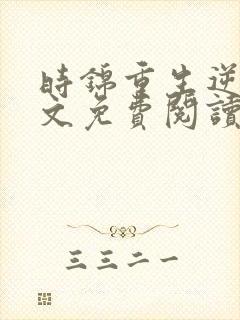 時錦重生逆
文免費閱讀
三三二一